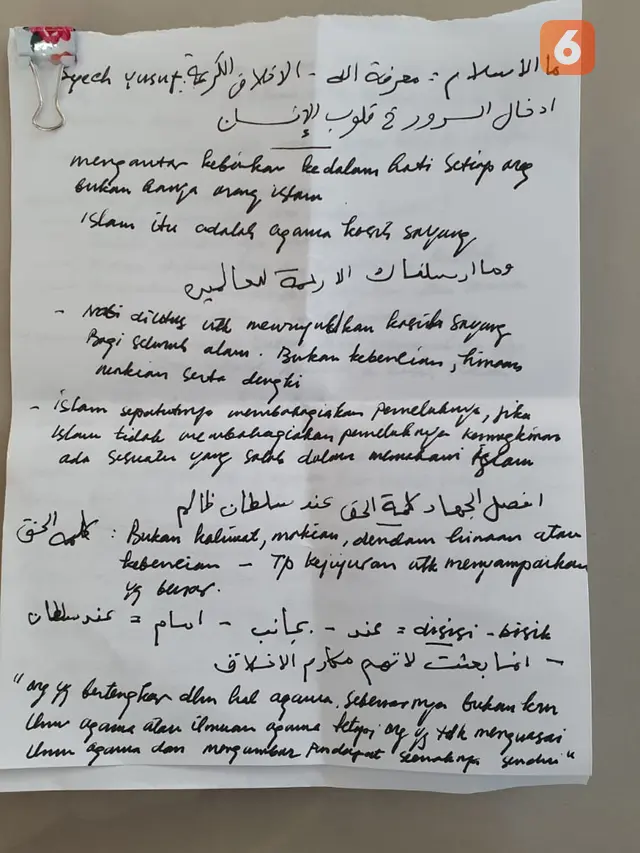 6
ما الاسلام : معرفة الله - الاخلاق الكريمة : Syech Yusuf
ادخال السرور في قلوب الإنسان
mengantar kebaikan kedalam hati setiap org
bukan hanya orang islam
Islam itu adalah agama kasih sayang
وما ارسلناك الا رحمة للعالمين
- Nabi diutus utk mewujudkan kasih sayang
Bagi seluruh alam. Bukan kebencian, hinaan
makian serta dengki
- Islam sepatutnya membahagiakan pemeluknya, jika
Islam tidak membahagiakan pemeluknya kemungkinan
ada sesuatu yang salah dalam memahami Islam
افضل الجهاد كلمة الحق عند سلطان ظالم
كلمة الحق : Bukan kalimat, makian, dendam hinaan atau
kebencian - Tp kejujuran utk menyampaikan
yg benar.
عند سلطان = امام - بجانب - عند = disisi - bisik
- انما بعثت لاتمم مكارم الاخلاق
"org yg bertengkar dlm hal agama, sebenarnya bukan krn
ilmu agama atau ilmuan agama tetapi org yg tdk menguasai
ilmu agama dan mengumbar pendapat seenaknya sendiri"